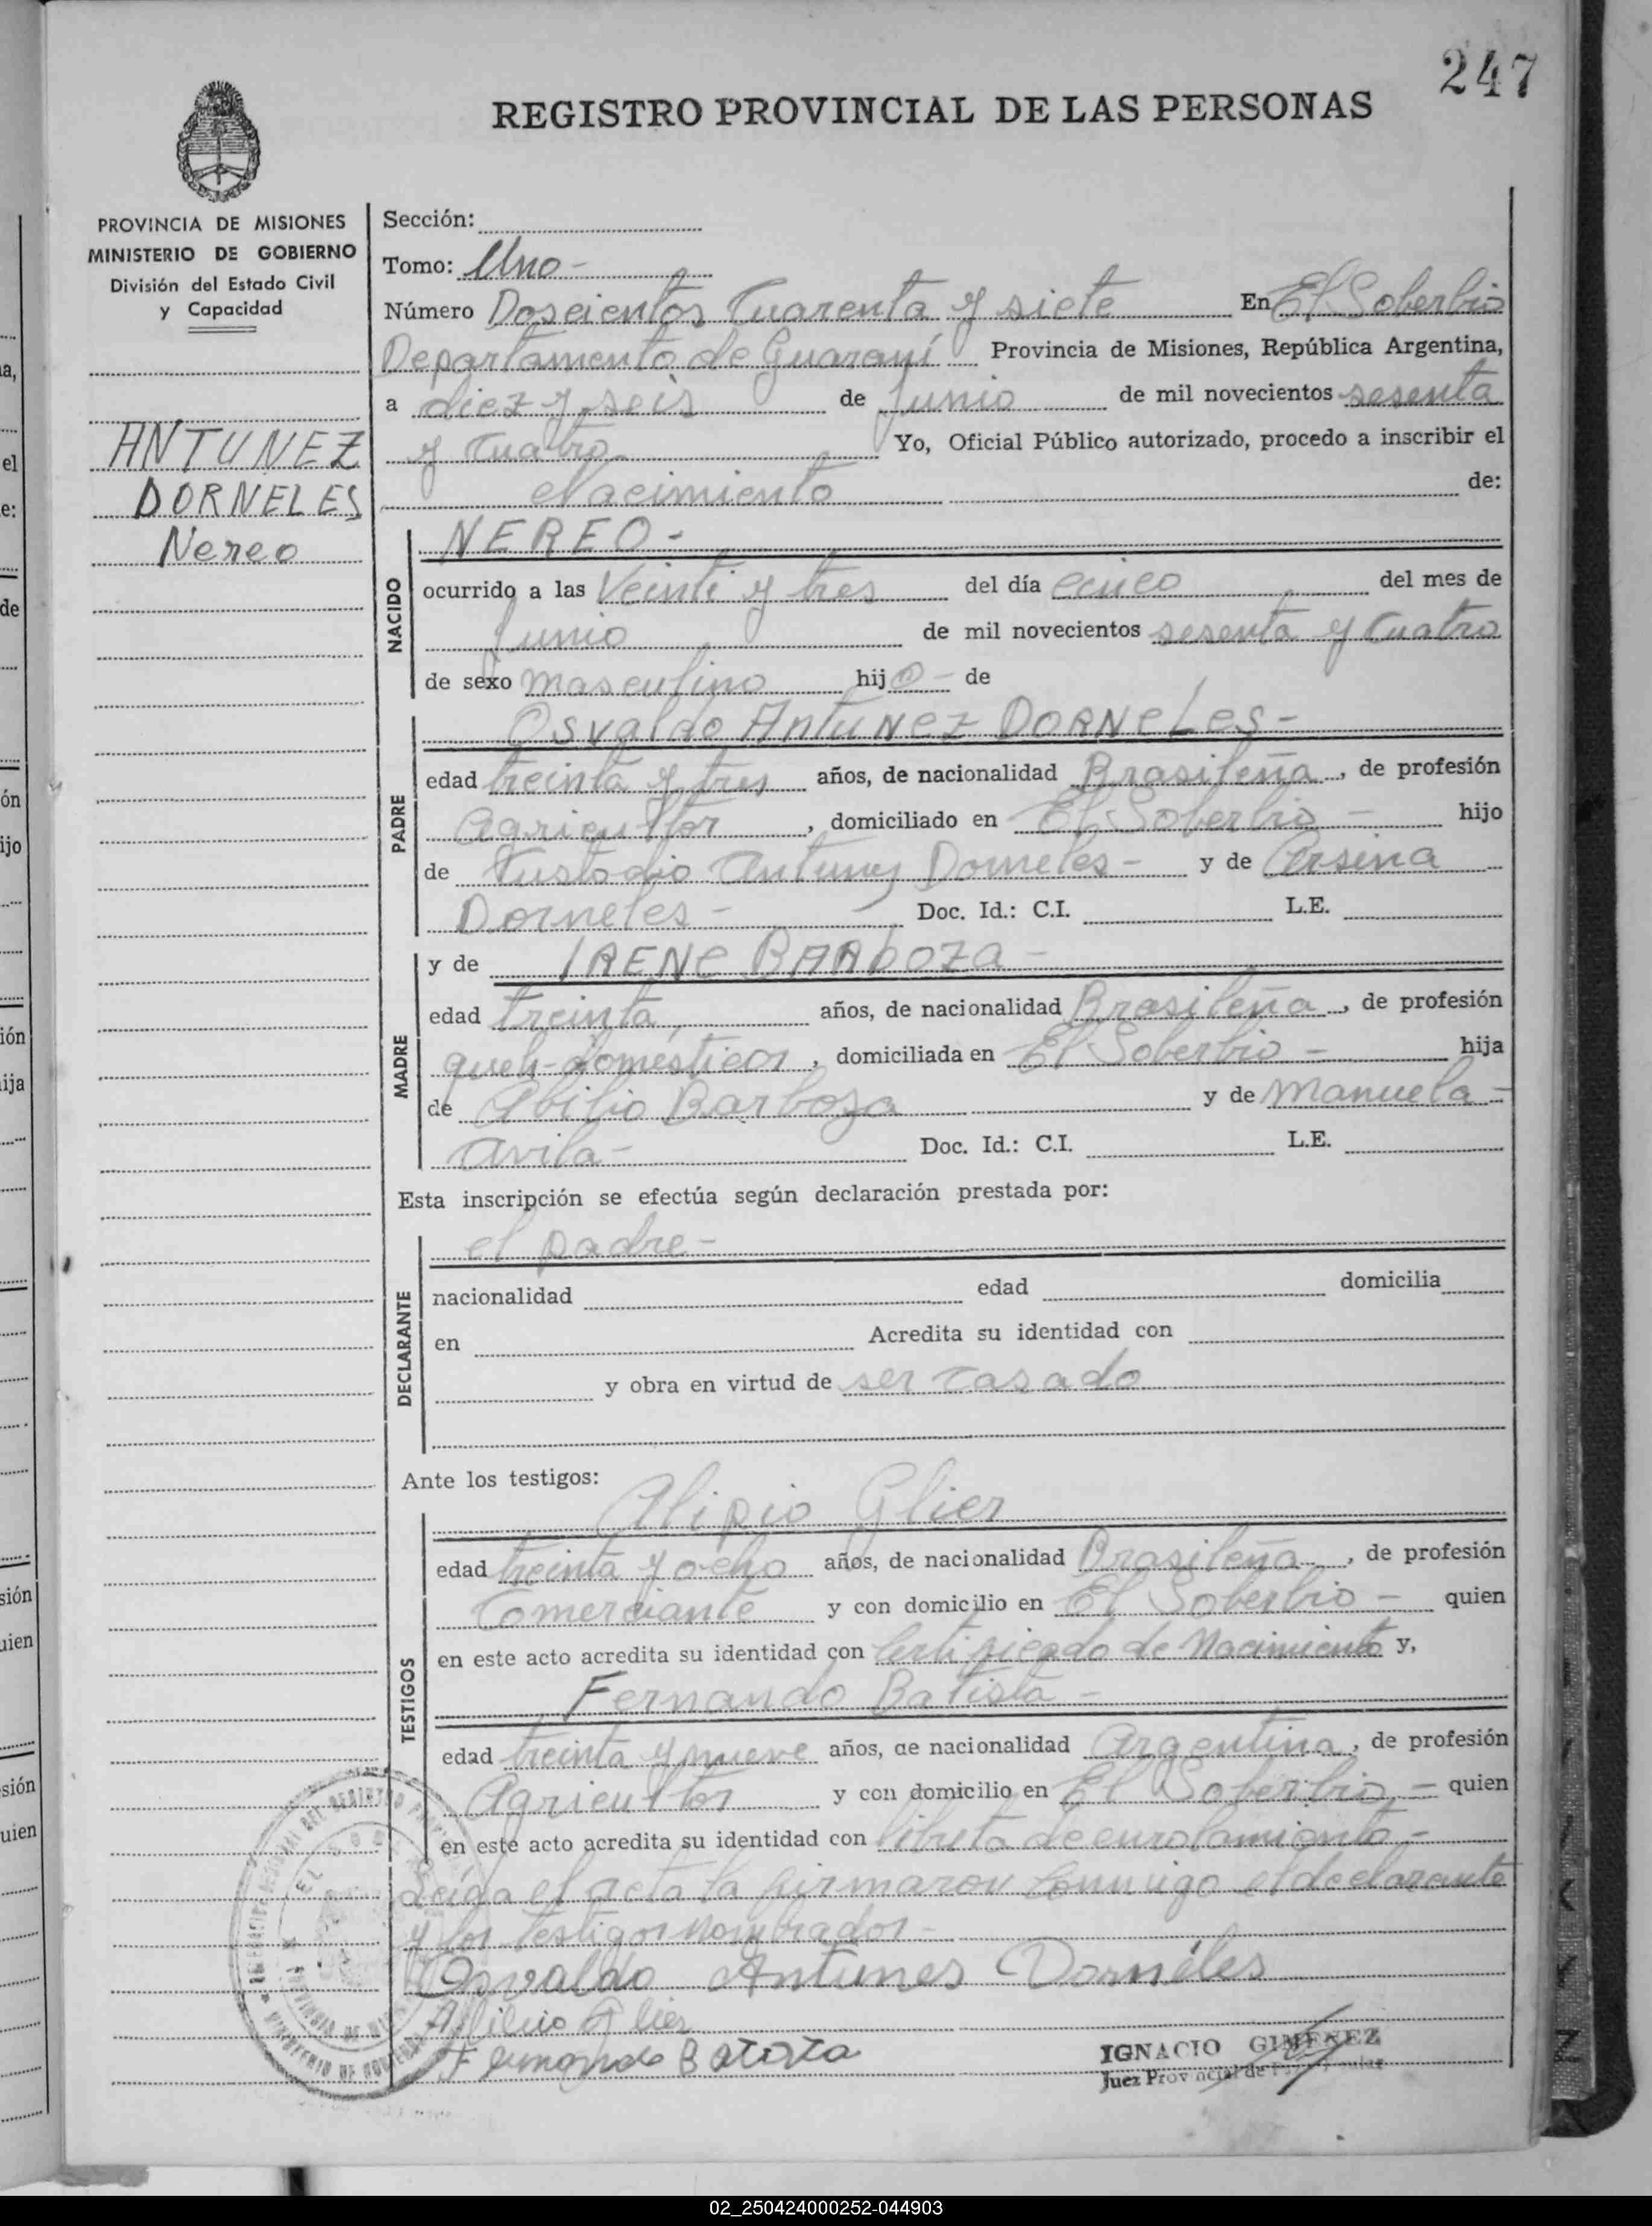 247
REGISTRO PROVINCIAL DE LAS PERSONAS
PROVINCIA DE MISIONES
MINISTERIO DE GOBIERNO
División del Estado Civil
y Capacidad
ANTUNEZ
DORNELES
Nereo
Sección:
Tomo: Uno-
Número Doscientos Cuarenta y siete En El Soberbio
Departamento de Guaraní Provincia de Misiones, República Argentina,
a diez y seis de Junio de mil novecientos sesenta
y Cuatro Yo, Oficial Público autorizado, procedo a inscribir el
nacimiento de:
NACIDO
NEREO-
ocurrido a las Veinti y tres del día cinco del mes de
Junio de mil novecientos sesenta y Cuatro
de sexo masculino hijo- de
PADRE
Osvaldo Antunez Dorneles-
edad treinta y tres años, de nacionalidad Brasileña, de profesión
Agricultor, domiciliado en El Soberbio - hijo
de Custodio Antunes Dorneles- y de Arsena
Dorneles- Doc. Id.: C.I. L.E.
MADRE
y de IRENE BARboza-
edad treinta, años, de nacionalidad Brasileña, de profesión
queh-domésticos, domiciliada en El Soberbio - hija
de Abilio Barboza y de Manuela-
Avila- Doc. Id.: C.I. L.E.
Esta inscripción se efectúa según declaración prestada por:
DECLARANTE
el padre-
nacionalidad edad domicilia
en Acredita su identidad con
y obra en virtud de ser casado
Ante los testigos:
TESTIGOS
Alipio Glier
edad treinta y ocho años, de nacionalidad Brasileña, de profesión
Comerciante y con domicilio en El Soberbio - quien
en este acto acredita su identidad con Certificado de Nacimiento y,
Fernando Batista-
edad treinta y nueve años, de nacionalidad Argentina, de profesión
Agricultor y con domicilio en El Soberbio, - quien
en este acto acredita su identidad con libreta de enrolamiento-
Leída el acta la firmaron conmigo el declarante
y los testigos nombrados-
Osvaldo Antunes Dornéles
Glier
Fernando Batista
IGNACIO GIMENEZ
Juez Provincial de
02_250424000252-044903